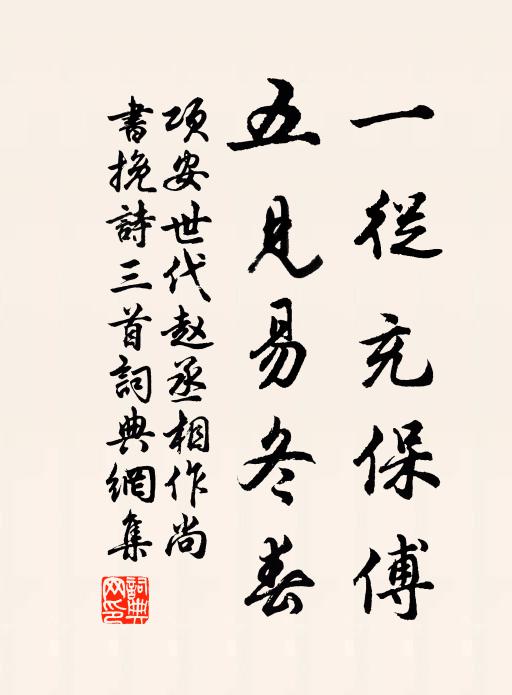 一從充保傅
五見易冬春
項安世代赵丞相作尚
書挽詩三首詞典網集